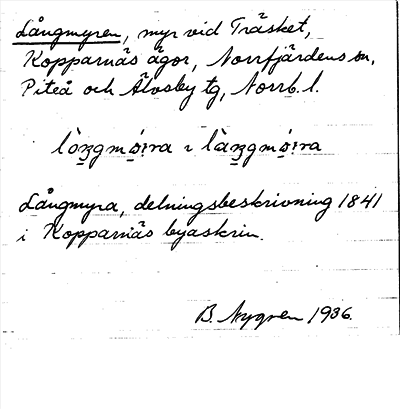 Långmyren, myr vid Träsket,
Kopparnäs ägor, Norrfjärdens sn,
Piteå och Älvsby tg, Norrb. l.
Långmyra, delningsbeskrivning 1841
i Kopparnäs byaskrin.
B. Nygren 1936.